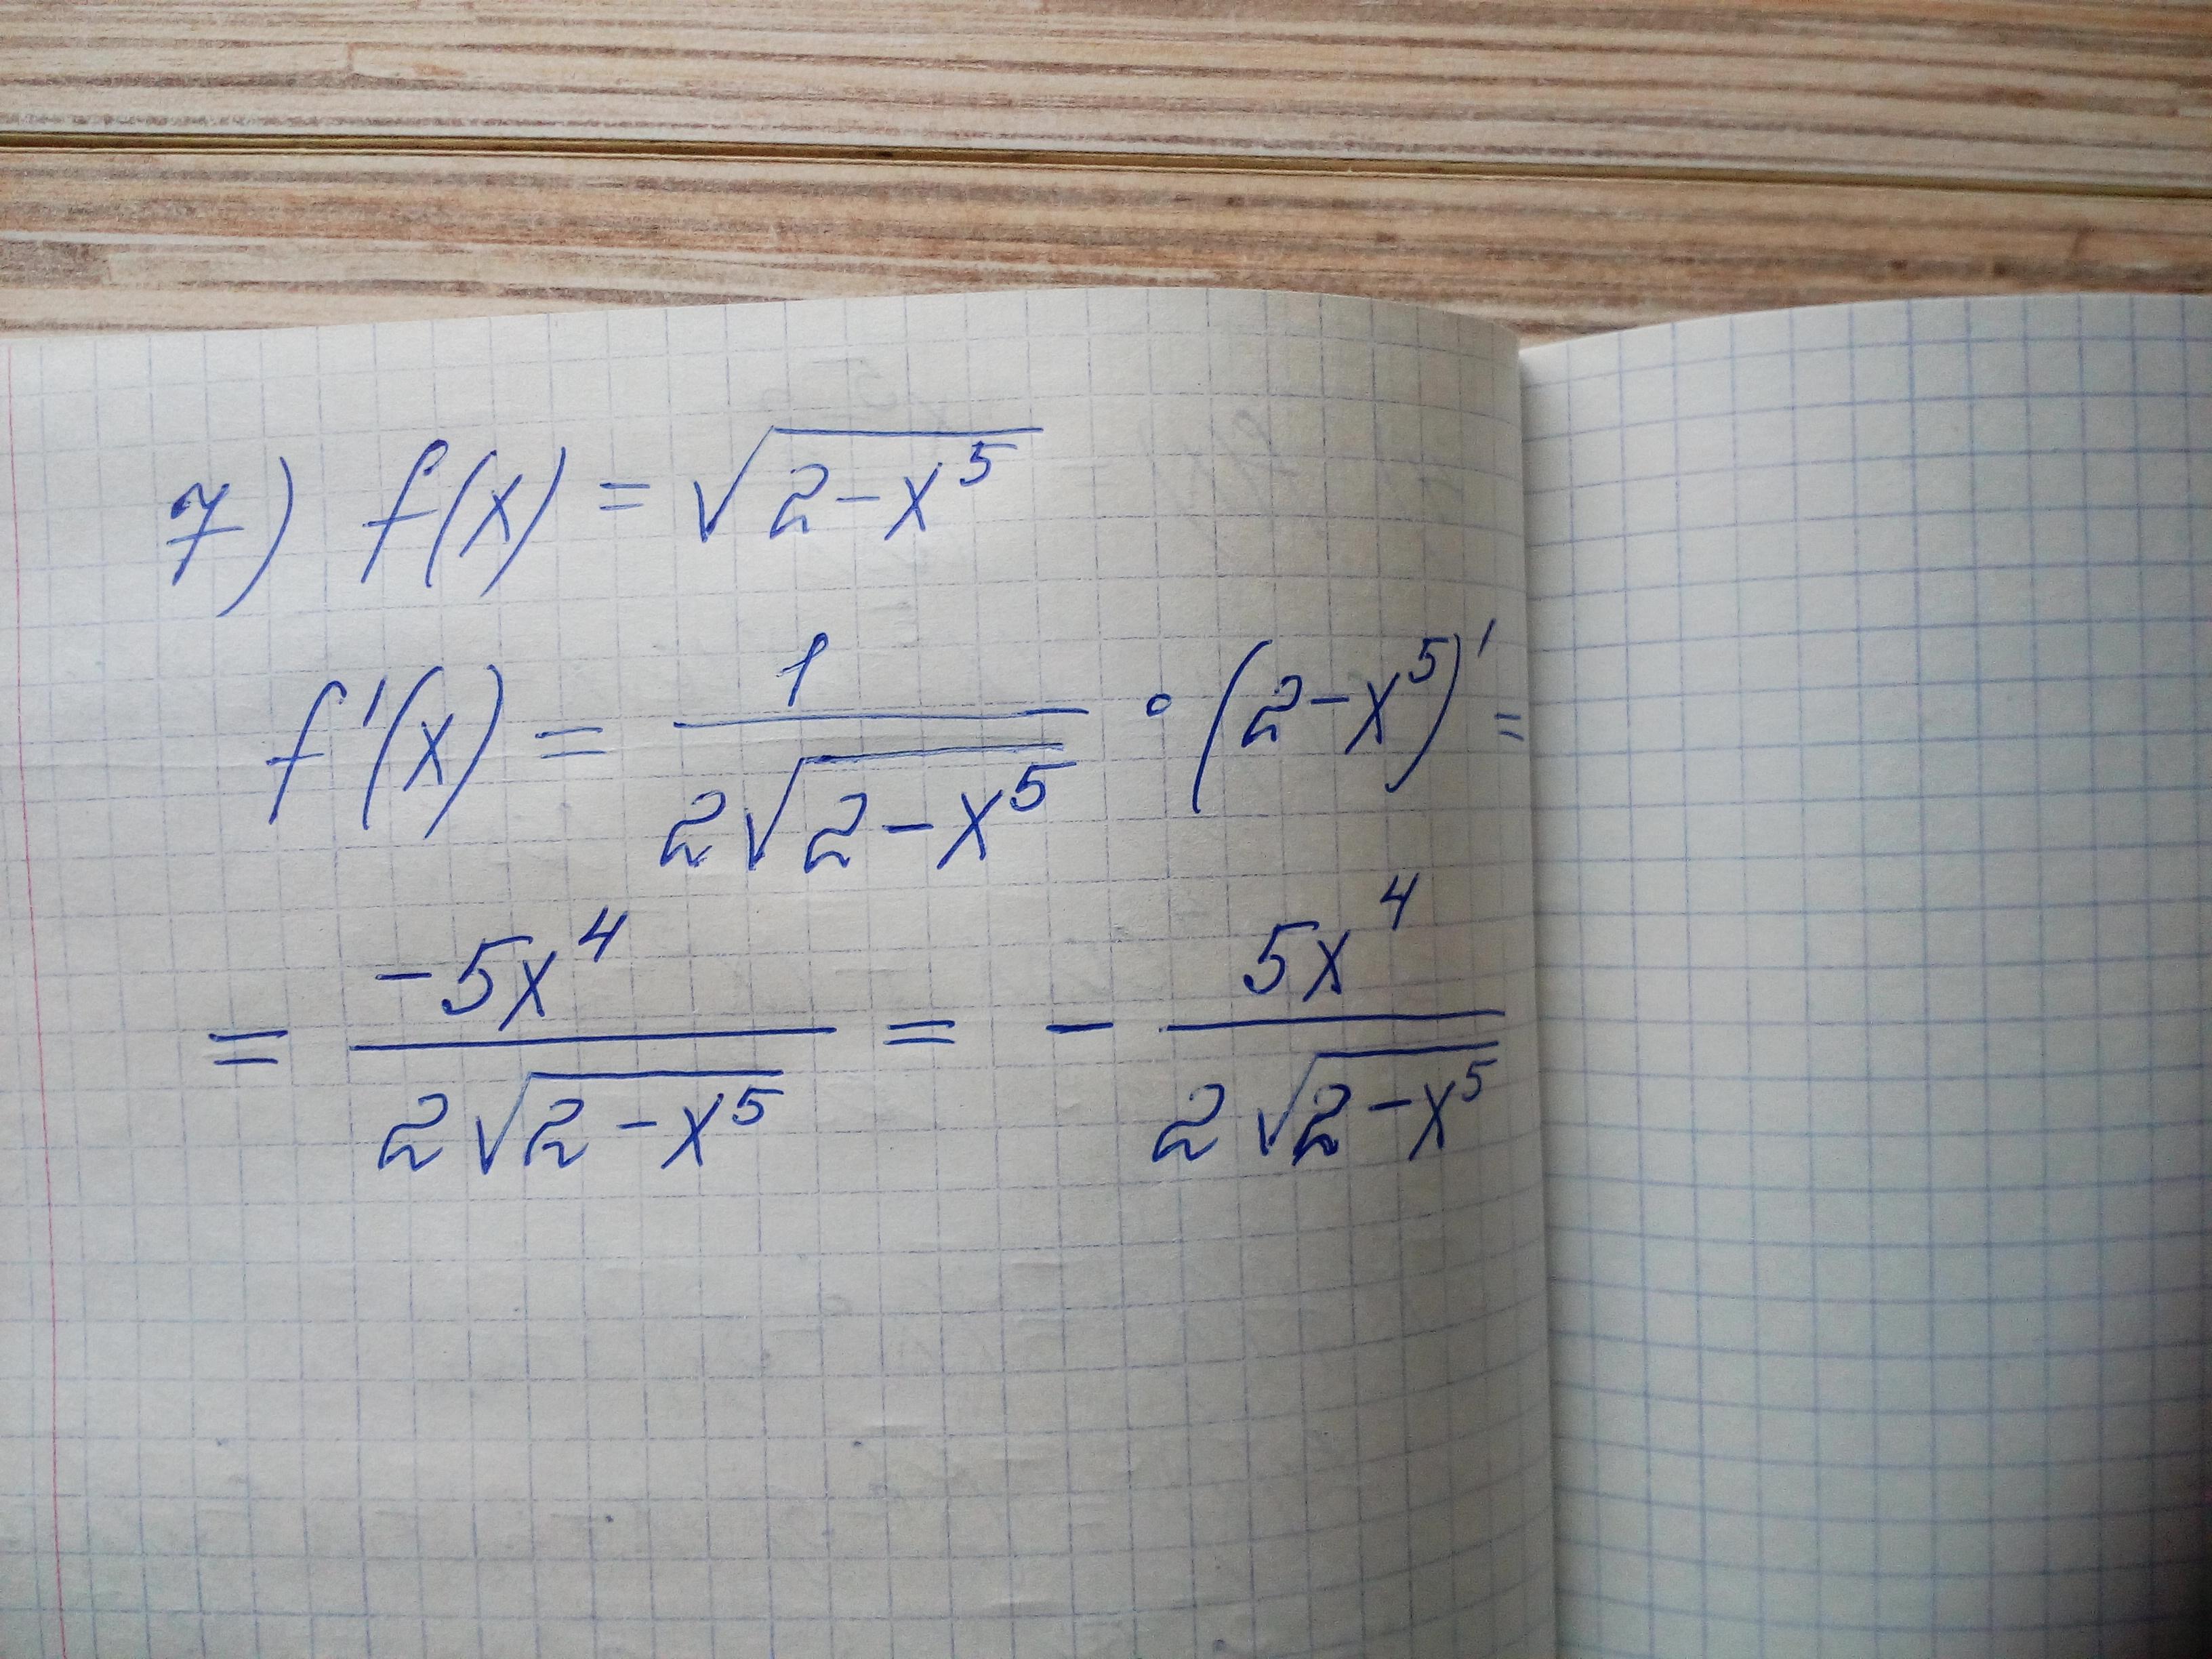 7) f(x) = √(2-x⁵)
f'(x) = 1/(2√(2-x⁵)) · (2-x⁵)' =
= -5x⁴/(2√(2-x⁵)) = - 5x⁴/(2√(2-x⁵))